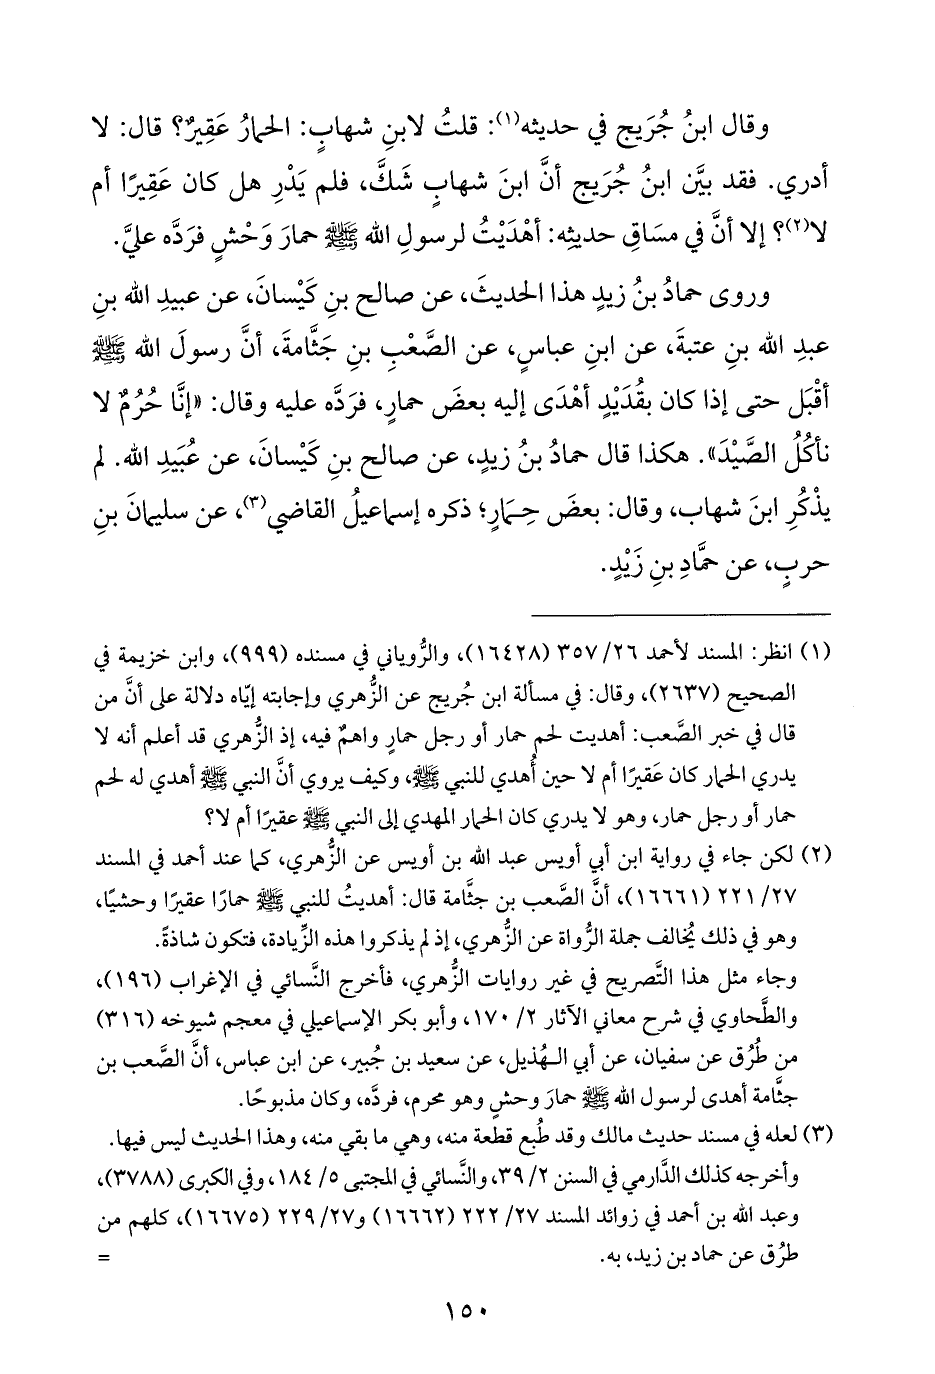 وقال ابنُ جُرَيج في حديثه(١): قلتُ لابنِ شهابٍ: الحمارُ عَقِيرٌ؟ قال: لا
أدري. فقد بيَّن ابنُ جُرَيج أنَّ ابنَ شهابٍ شَكَّ، فلم يَدْرِ هل كان عَقِيرًا أم
لا(٢)؟ إلا أنَّ في مسَاقِ حديثِه: أهْدَيْتُ لرسولِ الله ﷺ حمارَ وَحْشٍ فرَدَّه عليَّ.
وروى حمادُ بنُ زيدٍ هذا الحديثَ، عن صالح بنِ كَيْسانَ، عن عبيدِ الله بنِ
عبدِ الله بنِ عتبةَ، عن ابنِ عباسٍ، عن الصَّعْبِ بنِ جَثَّامةَ، أنَّ رسولَ الله ﷺ
أقْبَل حتى إذا كان بقُدَيْدٍ أهْدَى إليه بعضَ حمارٍ، فرَدَّه عليه وقال: «إنَّا حُرُمٌ لا
نأكُلُ الصَّيْدَ». هكذا قال حمادُ بنُ زيدٍ، عن صالح بنِ كَيْسانَ، عن عُبَيدِ الله. لم
يذْكُرِ ابنَ شهاب، وقال: بعضَ حِمَارٍ؛ ذكره إسماعيلُ القاضي(٣)، عن سليمانَ بنِ
حربٍ، عن حمَّادِ بنِ زَيْدٍ.
(١) انظر: المسند لأحمد ٢٦/ ٣٥٧ (١٦٤٢٨)، والرُّوياني في مسنده (٩٩٩)، وابن خزيمة في
الصحيح (٢٦٣٧)، وقال: في مسألة ابن جُريج عن الزُّهري وإجابته إيّاه دلالة على أنَّ من
قال في خبر الصَّعب: أهديت لحم حمار أو رجل حمارٍ واهمٌ فيه، إذ الزُّهري قد أعلم أنه لا
يدري الحمار كان عَقيرًا أم لا حين أُهدي للنبي ﷺ، وكيف يروي أنَّ النبي ﷺ أهدي له لحم
حمار أو رجل حمار، وهو لا يدري كان الحمار المهدي إلى النبي ﷺ عقيرًا أم لا؟
(٢) لكن جاء في رواية ابن أبي أويس عبد الله بن أويس عن الزُّهري، كما عند أحمد في المسند
٢٧/ ٢٢١ (١٦٦٦١)، أنَّ الصَّعب بن جثَّامة قال: أهديتُ للنبي ﷺ حمارًا عقيرًا وحشيًا،
وهو في ذلك يُخالف جملة الرُّواة عن الزُّهري، إذ لم يذكروا هذه الزِّيادة، فتكون شاذةً.
وجاء مثل هذا التَّصريح في غير روايات الزُّهري، فأخرج النَّسائي في الإغراب (١٩٦)،
والطَّحاوي في شرح معاني الآثار ٢/ ١٧٠، وأبو بكر الإسماعيلي في معجم شيوخه (٣١٦)
من طُرُق عن سفيان، عن أبي الـهُذيل، عن سعيد بن جُبير، عن ابن عباس، أنَّ الصَّعب بن
جثَّامة أهدى لرسول الله ﷺ حمارَ وحشٍ وهو محرم، فردَّه، وكان مذبوحًا.
(٣) لعله في مسند حديث مالك وقد طُبع قطعة منه، وهي ما بقي منه، وهذا الحديث ليس فيها.
وأخرجه كذلك الدَّارمي في السنن ٢/ ٣٩، والنَّسائي في المجتبى ٥/ ١٨٤، وفي الكبرى (٣٧٨٨)،
وعبد الله بن أحمد في زوائد المسند ٢٧/ ٢٢٢ (١٦٦٦٢) و٢٧/ ٢٢٩ (١٦٦٧٥)، كلهم من
طرُق عن حماد بن زيد، به. =
١٥٠